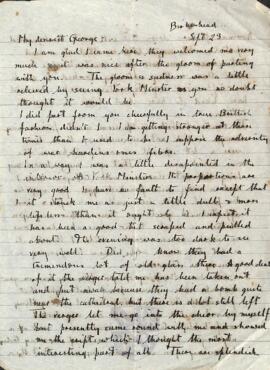 Sept 23
My dearest George
I am glad I came here they welcomed me very
much it was nice after the gloom of parting
with you. The gloom & sadness was a little
relieved by seeing York Minster as you no doubt
thought it would be.
I did part from you cheerfully in true British
fashion didn't I. I am getting stronger at these
times than I used to be. I suppose the adversity
of war hardens one's
In a way I was a little disappointed in the
of York Minster. The proportions are
very good I have no fault to find except that
it struck me as just a little dull & more
lifeless than it ought to be. I expect it
has been a good bit scraped and pulled
about. The evening was too dark to see
very well. Did you know they had a
tremendous lot of old glass there. A good deal
of it the verger told me has been taken out
and put away because they had a bomb quite
near the cathedral, but there is a lot still left
The verger let me go into the choir by myself
but presently came round with me and showed
me the crypt which I thought the most
interesting part of all. There are splendid